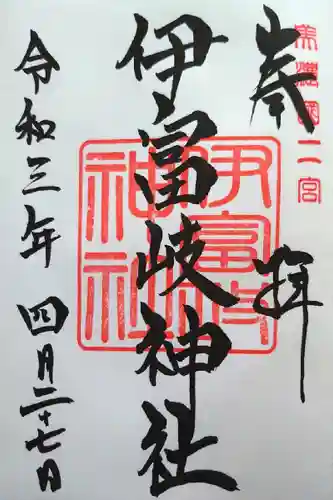 美濃國二宮
奉拝
伊富岐神社
伊富岐神社
令和三年四月二十七日